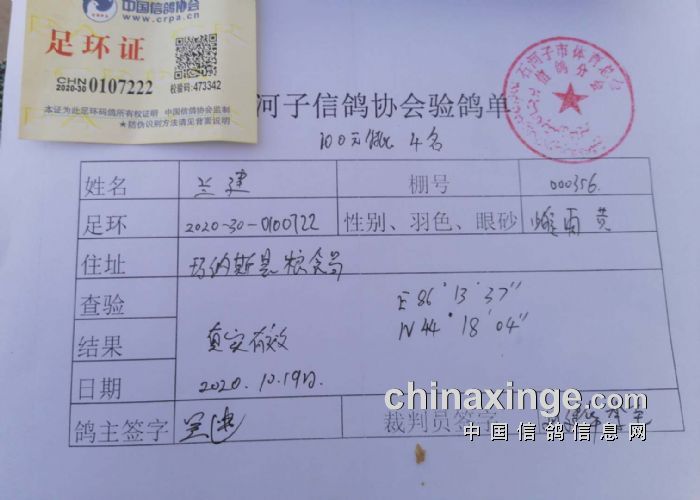 中国信鸽协会
www.crpa.cn
足环证
CHN
2020-30 0107222
校验码:473342
本证为此足环码鸽所有权证明 中国信鸽协会监制
★防伪识别方法请见背面说明
河子信鸽协会验鸽单
石河子市体育总会
信鸽分会
100元 4名
姓名 兰建 棚号 000356
足环 2020-30-0107222 性别、羽色、眼砂 雌雨黄
住址 玛纳斯县粮食局
查验 E 86°13′37″
N 44°18′04″
结果 真实有效
日期 2020.10.19日
鸽主签字 兰建 裁判员签字
chinaxinge.com
中国信鸽信息网